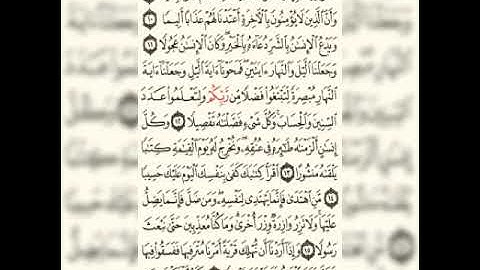 وَأَنَّ ٱلَّذِينَ لَا يُؤۡمِنُونَ بِٱلۡأٓخِرَةِ أَعۡتَدۡنَا لَهُمۡ عَذَابًا أَلِيمٗا
١٠ وَيَدۡعُ ٱلۡإِنسَٰنُ بِٱلشَّرِّ دُعَآءَهُۥ بِٱلۡخَيۡرِۖ وَكَانَ ٱلۡإِنسَٰنُ عَجُولٗا
١١ وَجَعَلۡنَا ٱلَّيۡلَ وَٱلنَّهَارَ ءَايَتَيۡنِۖ فَمَحَوۡنَآ ءَايَةَ ٱلَّيۡلِ وَجَعَلۡنَآ ءَايَةَ
ٱلنَّهَارِ مُبۡصِرَةٗ لِّتَبۡتَغُواْ فَضۡلٗا مِّن رَّبِّكُمۡ وَلِتَعۡلَمُواْ عَدَدَ
ٱلسِّنِينَ وَٱلۡحِسَابَۚ وَكُلَّ شَيۡءٖ فَصَّلۡنَٰهُ تَفۡصِيلٗا ١٢ وَكُلَّ
إِنسَٰنٍ أَلۡزَمۡنَٰهُ طَٰٓئِرَهُۥ فِي عُنُقِهِۦۖ وَنُخۡرِجُ لَهُۥ يَوۡمَ ٱلۡقِيَٰمَةِ كِتَٰبٗا
يَلۡقَىٰهُ مَنشُورًا ١٣ ٱقۡرَأۡ كِتَٰبَكَ كَفَىٰ بِنَفۡسِكَ ٱلۡيَوۡمَ عَلَيۡكَ حَسِيبٗا
١٤ مَّنِ ٱهۡتَدَىٰ فَإِنَّمَا يَهۡتَدِي لِنَفۡسِهِۦۖ وَمَن ضَلَّ فَإِنَّمَا يَضِلُّ
عَلَيۡهَاۚ وَلَا تَزِرُ وَازِرَةٞ وِزۡرَ أُخۡرَىٰۗ وَمَا كُنَّا مُعَذِّبِينَ حَتَّىٰ نَبۡعَثَ
رَسُولٗا ١٥ وَإِذَآ أَرَدۡنَآ أَن نُّهۡلِكَ قَرۡيَةً أَمَرۡنَا مُتۡرَفِيهَا فَفَسَقُواْ فِيهَا